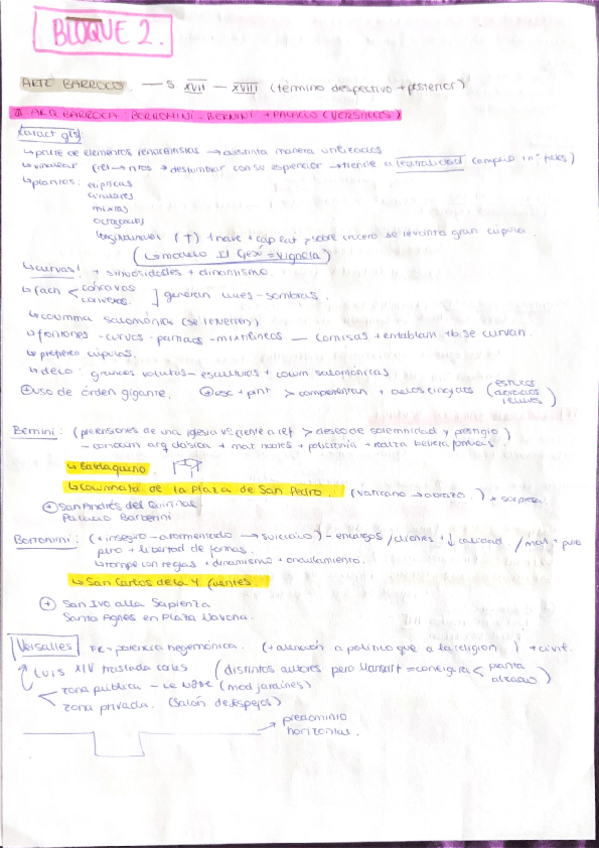 BLOQUE 2.
ARTE BARROCO. — S. XVII — XVIII (término despectivo + posterior)
ARQ BARROCA: BORROMINI - BERNINI + PALACIO (VERSALLES)
Caract gls:
↳ parte de elementos renacentistas → distinta manera utilizados
→ deslumbrar con su esplendor → tiende a teatralidad
↳ plantas: elípticas
circulares
mixtas
octogonales
longitudinales (↑) 1 nave + cap lat y sobre crucero se levanta gran cúpula.
(↳ modelo Il Gesú = Vignola)
↳ curvas! + sinuosidades + dinamismo.
↳ fach < cóncavas
convexas. ] generan luces - sombras.
↳ columna salomónica (se revierten)
↳ frontones - curvos - partidos - mixtilíneos — Cornisas + entablam tb se curvan.
↳ prefiere cúpulas.
↳ deco: grandes volutas - esculturas + colum salomónicas
⊕ uso de órden gigante. ⊕ esc + pint > complementan + (estucos
dorados
relieves)
Bernini: (pretensiones de una iglesia vs frente a ref > deseo de solemnidad y prestigio)
- conocim arq clásica + mat nobles + policromía + realza belleza formas.
↳ Baldaquino.
↳ Columnata de la Plaza de San Pedro. (Vaticano → abrazo.) * sorpresa.
⊕ San Andrés del Quirinal
Palacio Barberini
Borromini: (+ inseguro - atormentado → suicidio) - encargos / clientes + ↓ calidad. / mat + puro
pero + libertad de formas.
↳ rompe con reglas + dinamismo + ondulamiento.
↳ San Carlos de la 4 fuentes
⊕ San Ivo alla Sapienza
Santa Agnes en Plaza Navona.
Versalles FR = potencia hegemónica. (+ atención a político que a la religión) + civil.
Luis XIV traslada (distintos autores pero Mansart = configura < planta
alzado)
zona pública - Le Nôtre (mod jardines)
zona privada. (Salón de Espejos)
→ predominio
horizontal.